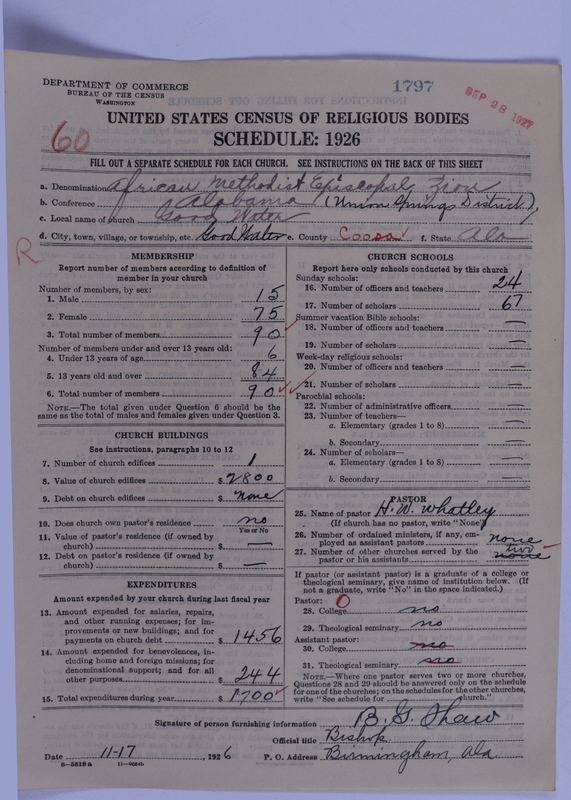 DEPARTMENT OF COMMERCE
BUREAU OF THE CENSUS
WASHINGTON
1797
SEP 28 1927
UNITED STATES CENSUS OF RELIGIOUS BODIES
60
SCHEDULE: 1926
FILL OUT A SEPARATE SCHEDULE FOR EACH CHURCH. SEE INSTRUCTIONS ON THE BACK OF THIS SHEET
a. Denomination African Methodist Epis'copal Zion
b. Conference Alabama (Union Springs District),
c. Local name of church Good Water
d. City, town, village, or township, etc. Good Water e. County Coosa f. State Ala
R
MEMBERSHIP
Report number of members according to definition of member in your church
Number of members, by sex:
1. Male 15
2. Female 75
3. Total number of members 90
Number of members under and over 13 years old:
4. Under 13 years of age 6
5. 13 years old and over 84
6. Total number of members 90
NOTE.—The total given under Question 6 should be the
same as the total of males and females given under Question 3.
CHURCH BUILDINGS
See instructions, paragraphs 10 to 12
7. Number of church edifices 1
8. Value of church edifices $ 2800
9. Debt on church edifices $ none
10. Does church own pastor's residence no
Yes or No
11. Value of pastor's residence (if owned by
church) $ —
12. Debt on pastor's residence (if owned by
church) $ —
EXPENDITURES
Amount expended by your church during last fiscal year
13. Amount expended for salaries, repairs,
and other running expenses; for im-
provements or new buildings; and for
payments on church debt $ 1456
14. Amount expended for benevolences, in-
cluding home and foreign missions; for
denominational support; and for all
other purposes $ 244
15. Total expenditures during year $ 1700
CHURCH SCHOOLS
Report here only schools conducted by this church
Sunday schools:
16. Number of officers and teachers 24
17. Number of scholars 67
Summer vacation Bible schools:
18. Number of officers and teachers —
19. Number of scholars —
Week-day religious schools:
20. Number of officers and teachers —
21. Number of scholars —
Parochial schools:
22. Number of administrative officers —
23. Number of teachers—
a. Elementary (grades 1 to 8) —
b. Secondary —
24. Number of scholars—
a. Elementary (grades 1 to 8) —
b. Secondary —
PASTOR
25. Name of pastor H. W. Whatley
(If church has no pastor, write "None")
26. Number of ordained ministers, if any, em-
ployed as assistant pastors none
27. Number of other churches served by the
pastor or his assistants two none
If pastor (or assistant pastor) is a graduate of a college or
theological seminary, give name of institution below. (If
not a graduate, write "No" in the space indicated.)
Pastor: 0
28. College no
29. Theological seminary no
Assistant pastor:
30. College no
31. Theological seminary no
NOTE.—Where one pastor serves two or more churches,
Questions 28 and 29 should be answered only on the schedule
for one of the churches; on the schedules for the other churches,
write "See schedule for church."
Signature of person furnishing information B. G. Shaw
Official title Bishop
Date 11-17, 1926 P. O. Address Birmingham, Ala.